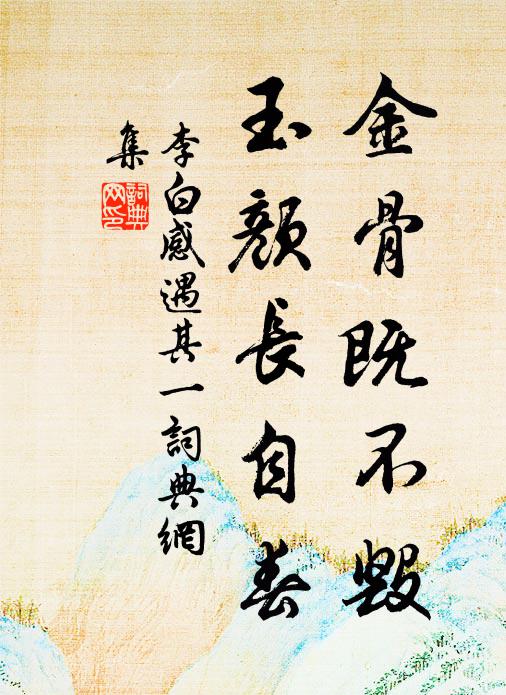 金骨既不毀
玉顏長自春
李白感遇其一詞典網
集
詞典
网印